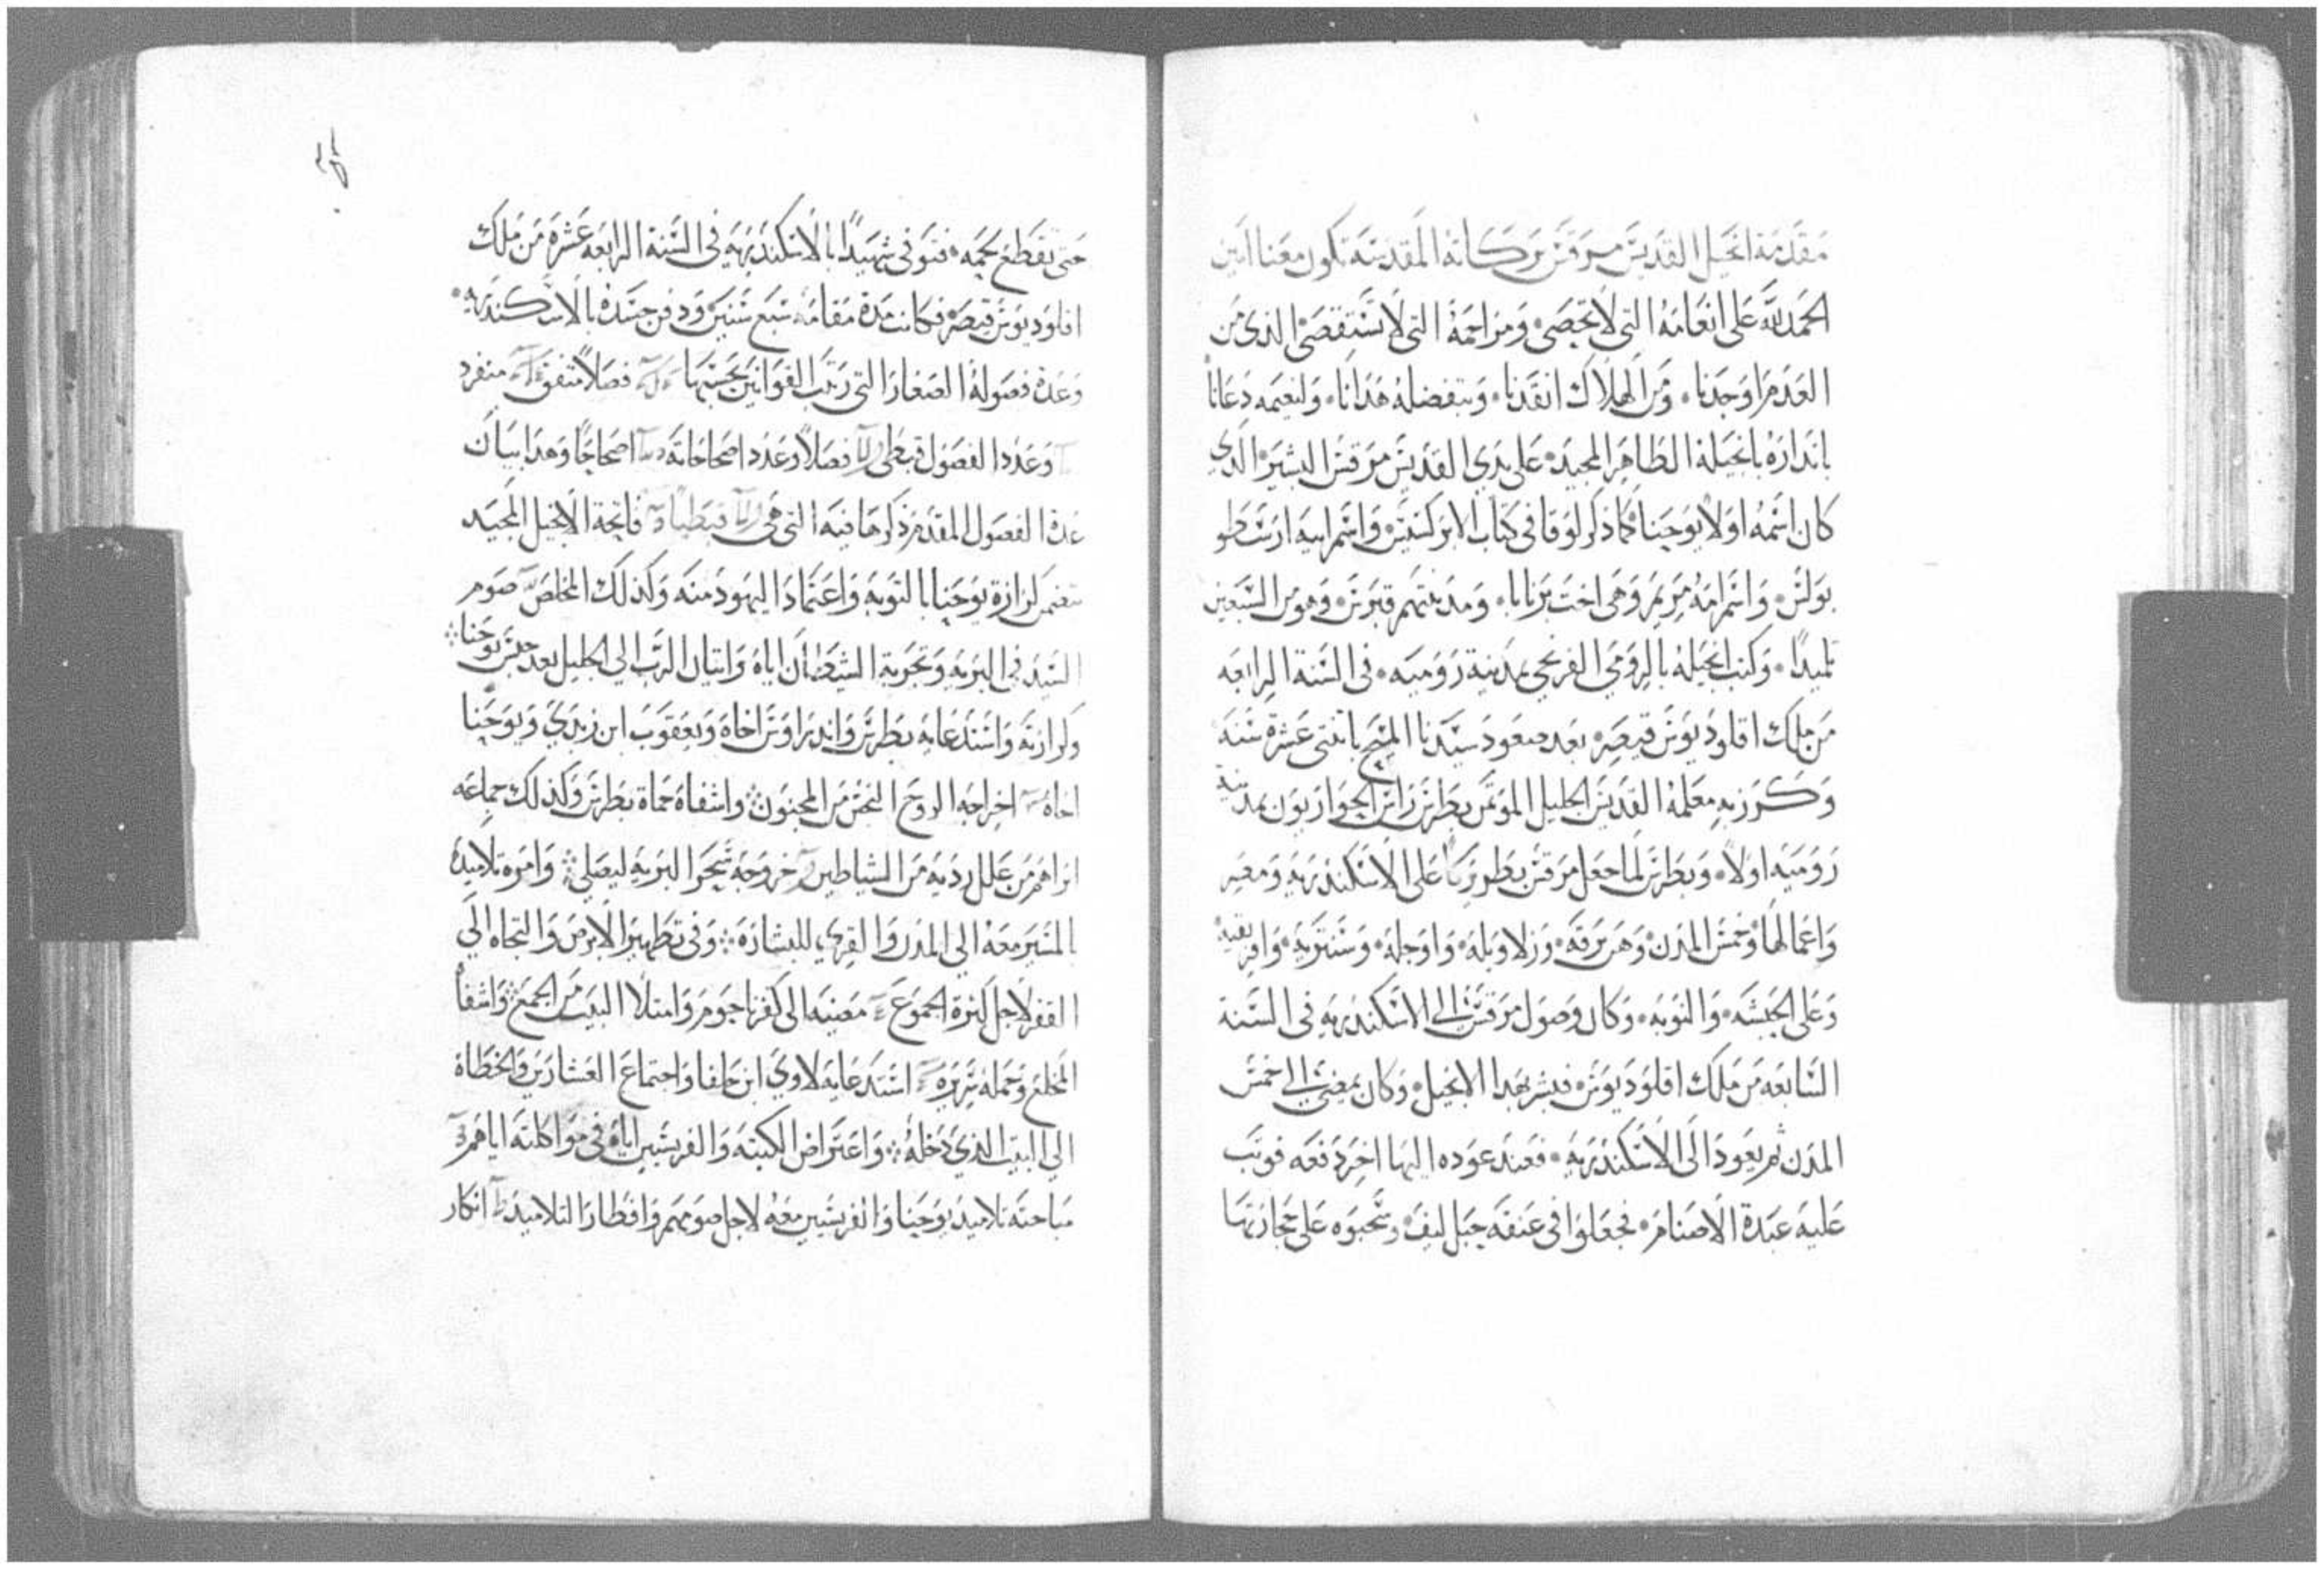 مقدمة انجيل القديس مرقس بركاته المقدسة تكون معنا امين
الحمد لله على انعامه التى لا تحصى ومراحمه التى لا تستقصى الذى من
العدم اوجدنا ومن الهلاك انقدنا وبتفضله هدانا ولنعيمه دعانا
باندازه بانجيله الطاهر المجيد على يدي القديس مرقس البشير الذي
كان اسمه اولا يوحنا كما ذكر لوقا في كتاب الابركسيس واسم ابيه ارسطو
بولس واسم امه مريم وهى اخت برنابا ومدينتهم قبرس وهو من السبعين
تلميدا وكتب انجيله بالرومي الفرنجي بمدينة رومية فى السنة الرابعه
من ملك اقلوديوس قيصر بعد صعود سيدنا المسيح باثنتى عشرة سنه
وكرز به معلمه القديس الجليل الموتمن بطرس راس الحواريون بمدينة
روميه اولا وبطرس لما جعل مرقس بطريركا على الاسكندريه ومصر
واعمالها وخمس المدن وهن برقه وزلاوبله واوجله وسنتريه وافريقيه
وعلى الحبشه والنوبه وكان وصول مرقس الى الاسكندريه فى السنة
السابعه من ملك اقلوديوس فبشر بهدا الانجيل وكان يمضى الى خمس
المدن ثم يعود الى الاسكندريه فعند عوده اليها اخر دفعه فوتب
عليه عبدة الاصنام فجعلوا فى عنقه حبل ليف وسحبوه على حجارتها
حتى تقطع لحمه فتوفى شهيدا بالاسكندريه فى السنة الرابعه عشرة من ملك
اقلوديوس قيصر فكانت مدة مقامه سبع سنين ودفن جسده بالاسكندريه
وعدة فصوله الصغار التى رتب القوانين بحسبها فصلا متفق منفرد
وعدد الفصول قبطى فصلا وعدد اصحاحاته اصحاحا وهدا بيان
عدة الفصول المقدم ذكرها فيه التى هى قبطيا فاتحة الانجيل المجيد
تتضمن كرازة يوحنا بالتوبه واعتماد اليهود منه وكذلك المخلص صوم
السيد فى البريه وتجربة الشيطان اياه واتيان الرب الى الجليل بعد حبس يوحنا
وكرازته واستدعايه بطرس واندراوس اخاه ويعقوب ابن زبدي ويوحنا
اخاه اخراجه الروح النجس من المجنون واشفاه حماة بطرس وكذلك جماعه
ابراهم من علل رديه من الشياطين خروجه سحر البريه ليصلي وامره تلاميده
بالمسير معه الى المدن والقري للبشاره وفى تطهير الابرص والتجاه الي
القفر لاجل كثرة الجموع مضيه الى كفرناحوم وامتلا البيت من الجمع واشفا
المخلع وحمله سريره استدعايه لاوي ابن حلفا واجتماع العشارين والخطاة
الي البيت الذي دخله واعتراض الكتبه والفريسيين اياه فى مواكلته اياهم
مباحته تلاميد يوحنا والفريسيين معه لاجل صومهم وافطار التلاميد انكار